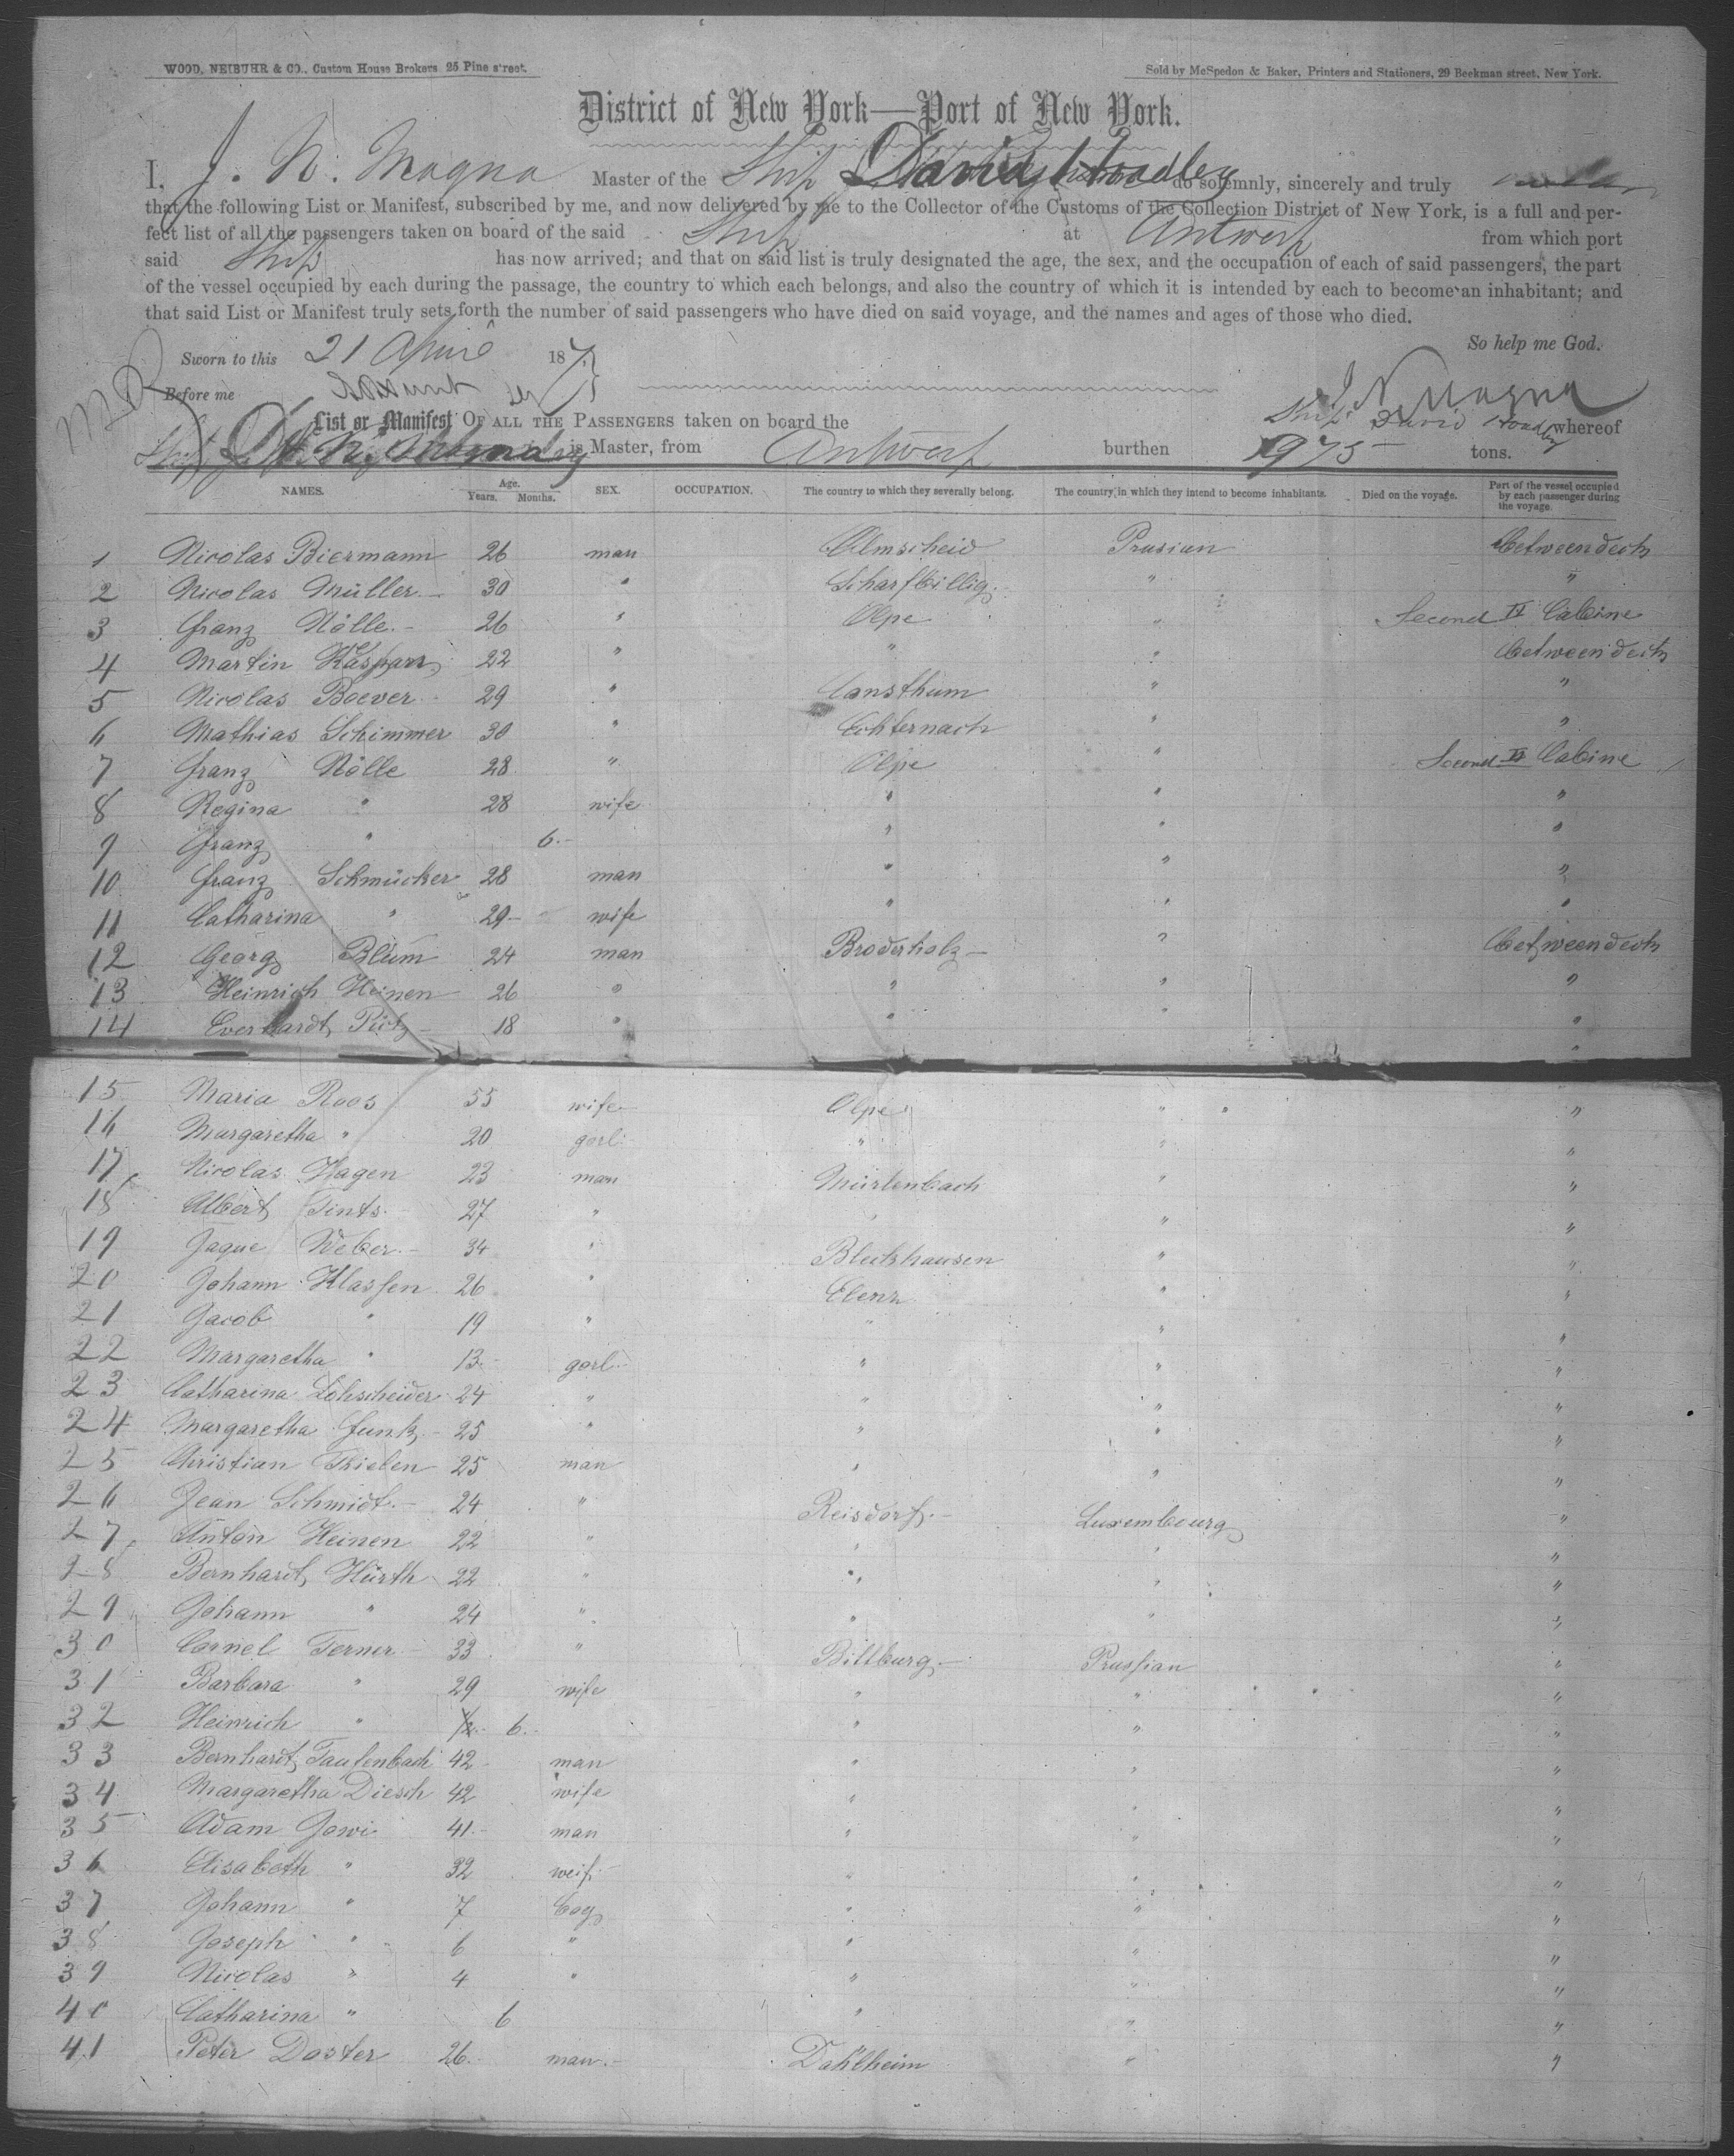 WOOD, NEIBUHR & CO., Custom House Brokers 25 Pine street.
Sold by McSpedon & Baker, Printers and Stationers, 29 Beekman street, New York.
District of New York—Port of New York.
I, J. N. Magna Master of the Ship David Hoadley do solemnly, sincerely and truly
that the following List or Manifest, subscribed by me, and now delivered by me to the Collector of the Customs of the Collection District of New York, is a full and per-
fect list of all the passengers taken on board of the said Ship at Antwerp from which port
said Ship has now arrived; and that on said list is truly designated the age, the sex, and the occupation of each of said passengers, the part
of the vessel occupied by each during the passage, the country to which each belongs, and also the country of which it is intended by each to become an inhabitant; and
that said List or Manifest truly sets forth the number of said passengers who have died on said voyage, and the names and ages of those who died.
So help me God.
Sworn to this 21 April 187
Before me
J N Magna
List or Manifest OF ALL THE PASSENGERS taken on board the Ship David Hoadley whereof
is Master, from Antwerp burthen 975 tons.
NAMES. Age. Years. Months. SEX. OCCUPATION. The country to which they severally belong. The country in which they intend to become inhabitants. Died on the voyage. Part of the vessel occupied by each passenger during the voyage.
1 Nicolas Biermann 26 man Olmscheid Prusian betweendeck
2 Nicolas Müller 30 " Scharfbillig " "
3 Franz Nölle 26 " Olpe " Second II Cabine
4 Martin Kaspars 22 " " " betweendeck
5 Nicolas Boever 29 " Consthum " "
6 Mathias Schimmer 30 " Echternach " "
7 Franz Nölle 28 " Olpe " Second II Cabine
8 Regina " 28 wife " " "
9 Franz " 6 " " "
10 Franz Schmücker 28 man " " "
11 Catharina " 29 wife " " "
12 Georg Blum 24 man Broderholz " betweendeck
13 Heinrich Heinen 26 " " " "
14 Everhardt Pütz 18 " " " "
15 Maria Roos 55 wife Olpe " "
16 Margaretha " 20 gerl " " "
17 Nicolas Hagen 23 man Mürlenbach " "
18 Albert Tints 27 " " " "
19 Jaque Weber 34 " Bleckhausen " "
20 Johann Klassen 26 " Elenz " "
21 Jacob " 19 " " " "
22 Margaretha " 13 gerl " " "
23 Catharina Lohscheider 24 " " " "
24 Margaretha Funk 25 " " " "
25 Christian Thielen 25 man " " "
26 Jean Schmidt 24 " Reisdorf Luxembourg "
27 Anton Heinen 22 " " " "
28 Bernhardt Hürth 22 " " " "
29 Johann " 24 " " " "
30 Cornel Terner 33 " Bittburg Prussian "
31 Barbara " 29 wife " " "
32 Heinrich " 6 " " "
33 Bernhardt Taufenbach 42 man " " "
34 Margaretha Diesch 42 wife " " "
35 Adam Jowi 41 man " " "
36 Elisabeth " 32 weif " " "
37 Johann " 7 boy " " "
38 Joseph " 6 " " " "
39 Nicolas " 4 " " " "
40 Catharina " 6 " " "
41 Peter Doster 26 man Dahlheim " "